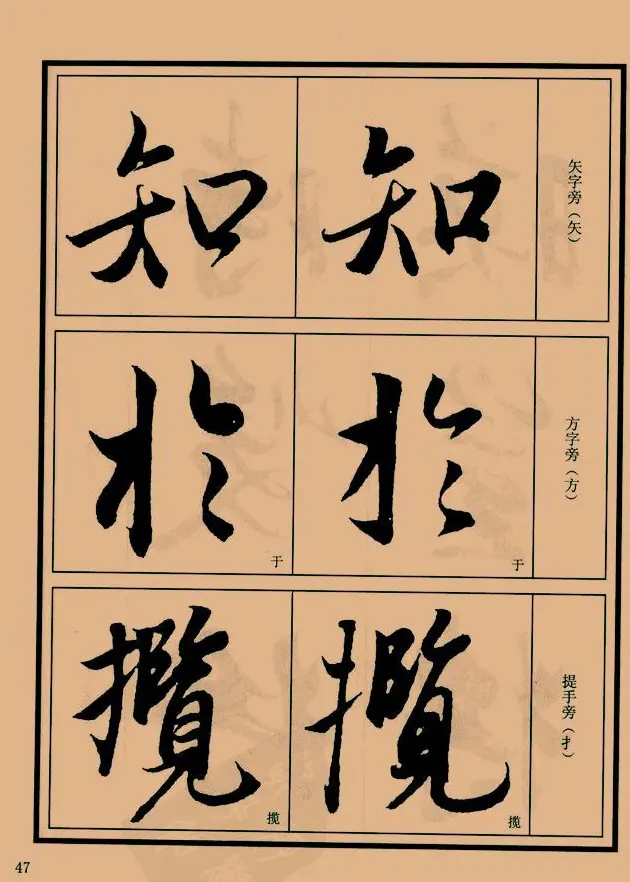 矢字旁（矢）
知 知
方字旁（方）
於 於
于 于
提手旁（扌）
攬 攬
揽 揽
47